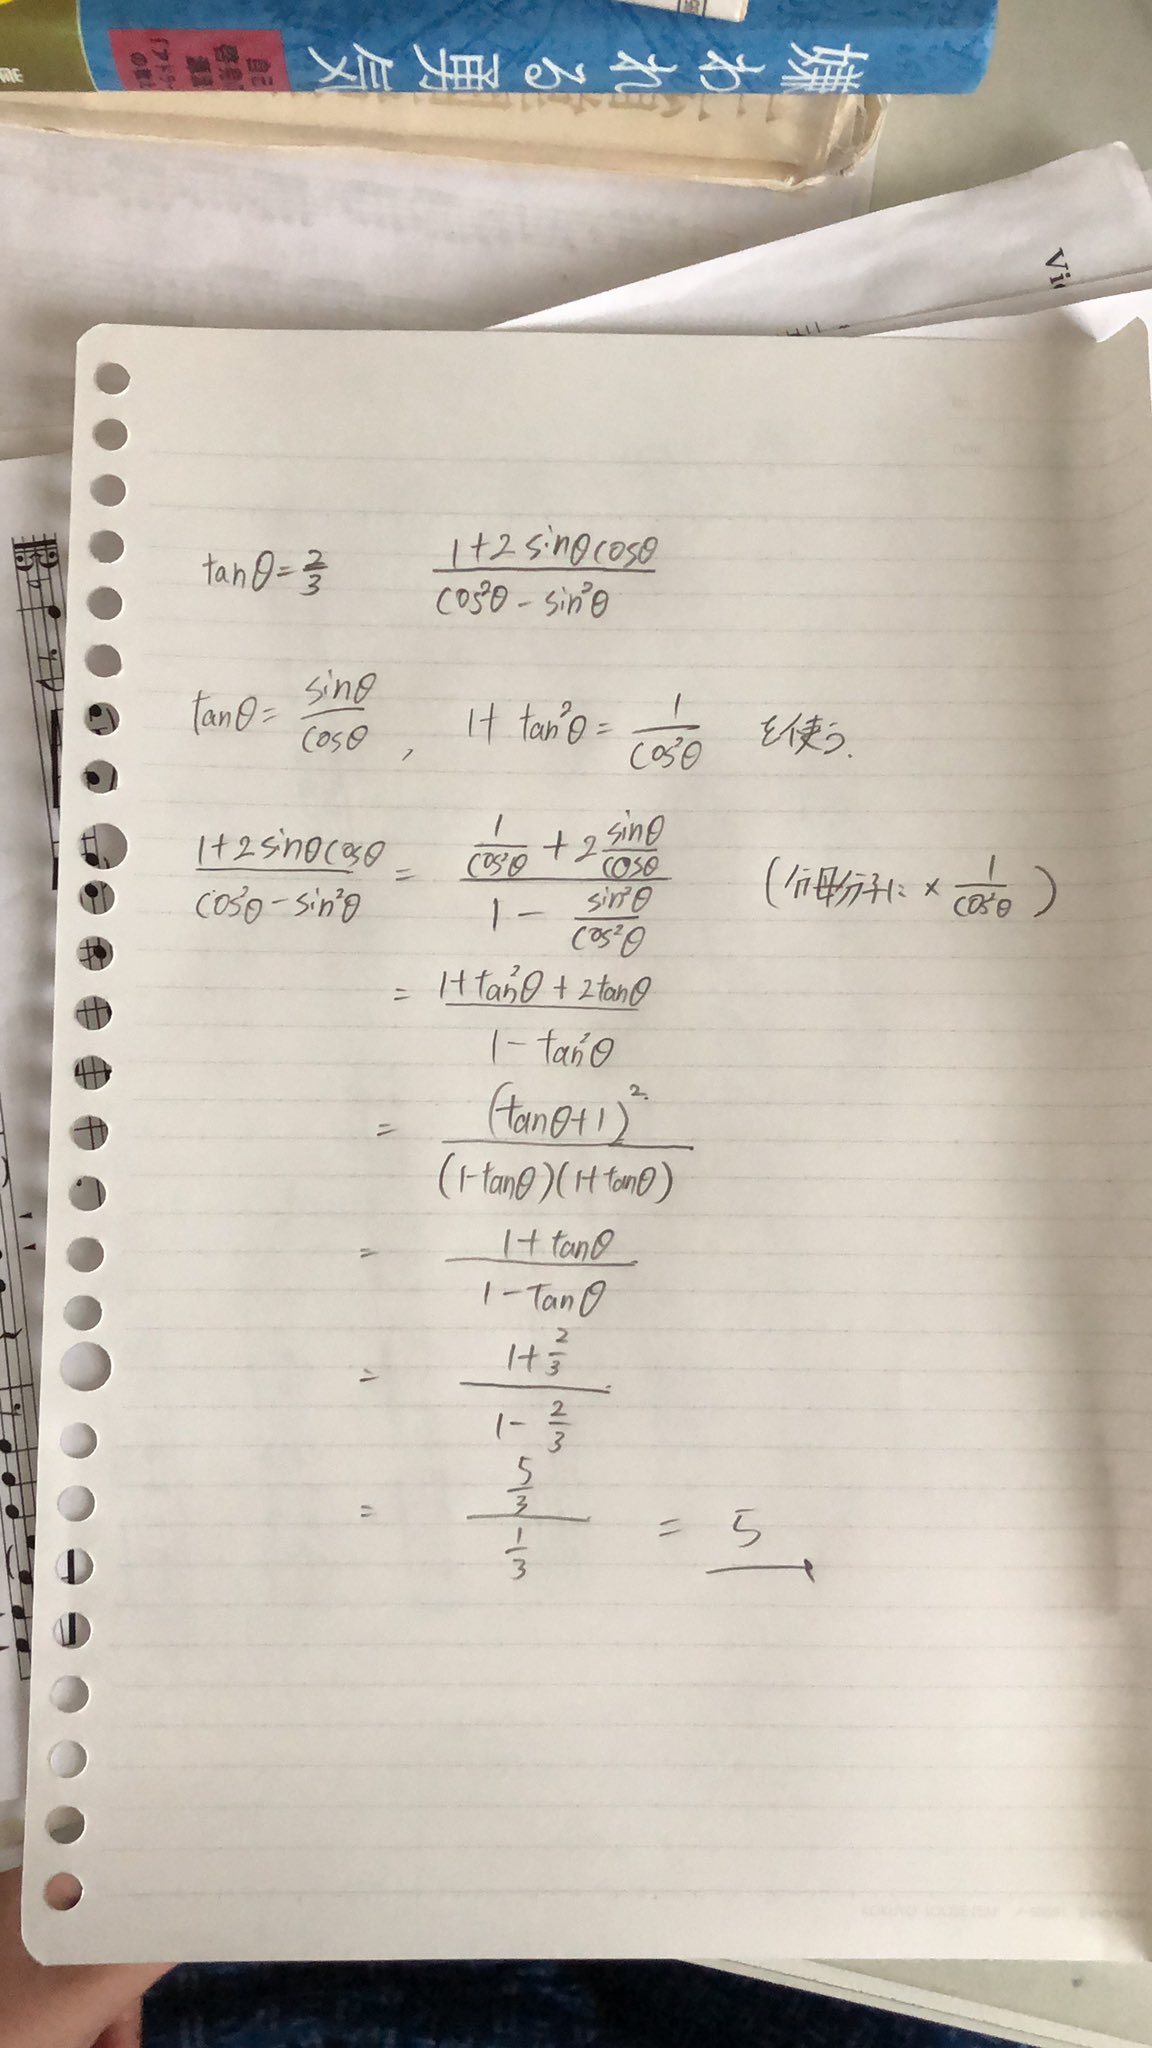 嫌われる勇気
Vi
tanθ=2/3 (1+2sinθcosθ)/(cos²θ-sin²θ)
tanθ= sinθ/cosθ , 1+tan²θ= 1/cos²θ を使う.
(1+2sinθcosθ)/(cos²θ-sin²θ) = (1/cos²θ + 2 sinθ/cosθ)/(1 - sin²θ/cos²θ) (分母分子に × 1/cos²θ)
= (1+tan²θ+2tanθ)/(1-tan²θ)
= (tanθ+1)²/((1-tanθ)(1+tanθ))
= (1+tanθ)/(1-tanθ)
= (1+2/3)/(1-2/3)
= (5/3)/(1/3) = 5